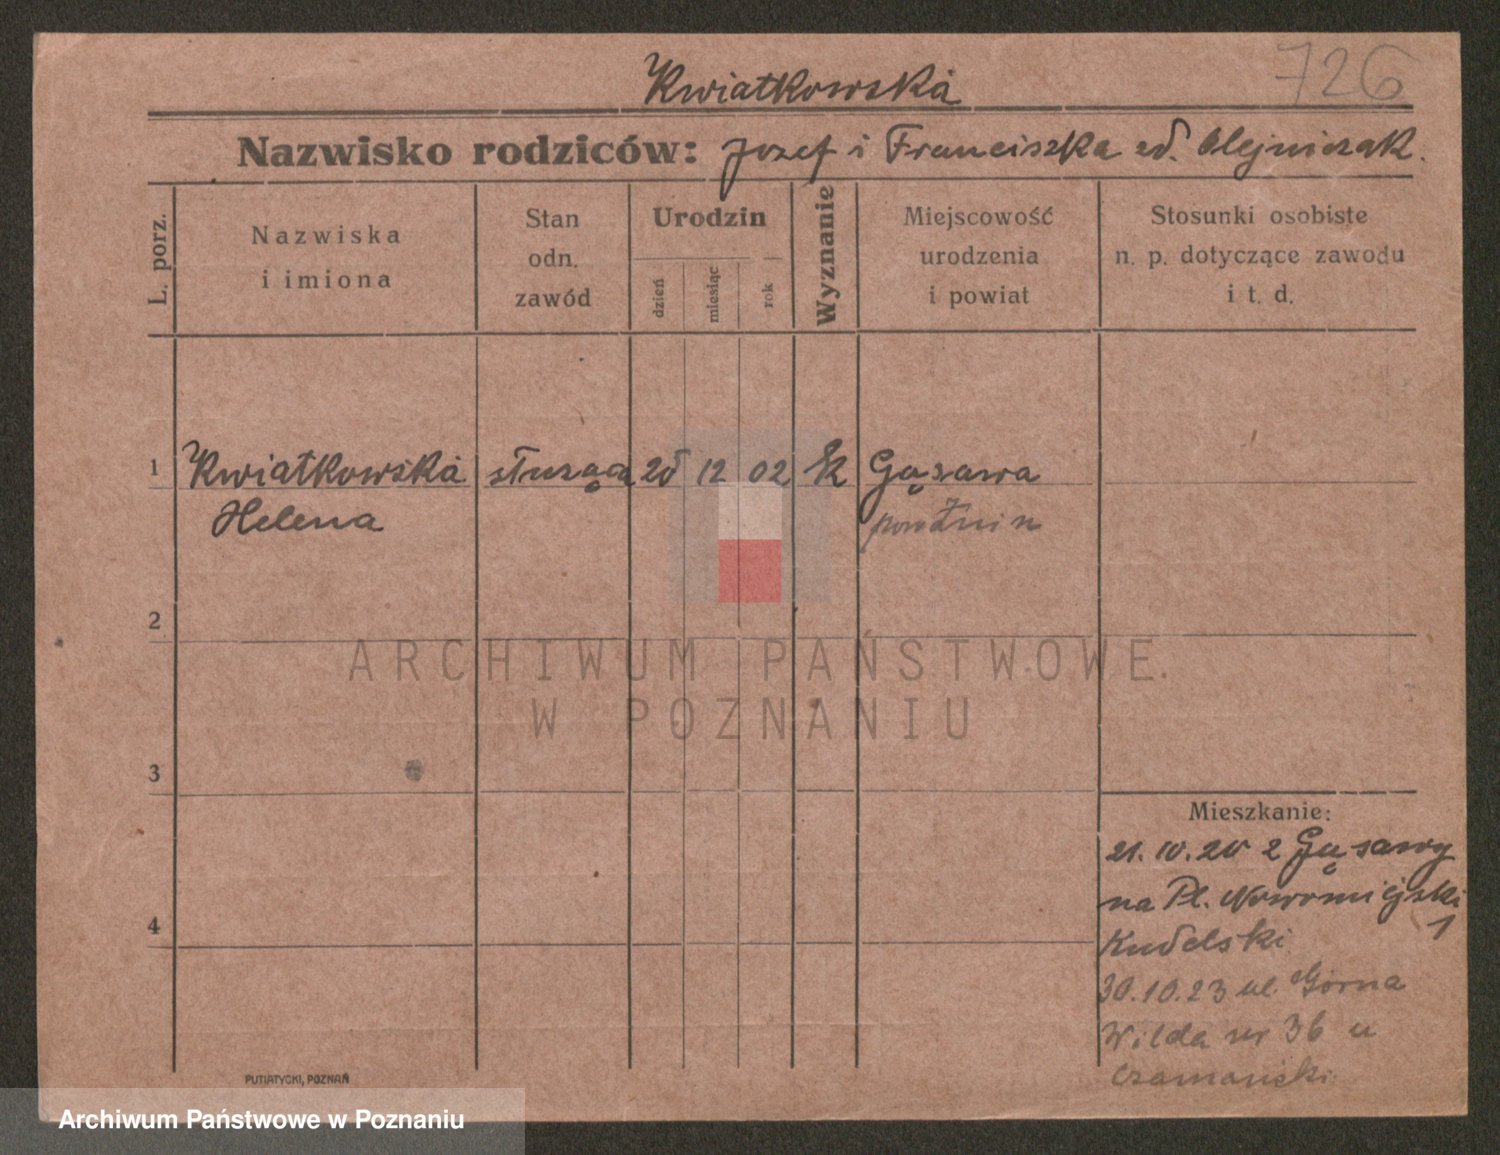 Kwiatkowska
726
Nazwisko rodziców: Józef i Franciszka zd. Olejniczak.
L. porz.
Nazwiska
i imiona
Stan
odn.
zawód
Urodzin
dzień
miesiąc
rok
Wyznanie
Miejscowość
urodzenia
i powiat
Stosunki osobiste
n. p. dotyczące zawodu
i t. d.
1 Kwiatkowska służąca 12 02 Gąsawa
Helena pow Żnin
2
3
4
Mieszkanie:
21.10.20 z Gąsawy
na Pl. Nowomiejski
1
Kudelski
30.10.23 ul. Górna
Wilda nr 36 u
PUTIATYCKI, POZNAŃ
ARCHIWUM PAŃSTWOWE
W POZNANIU
Archiwum Państwowe w Poznaniu